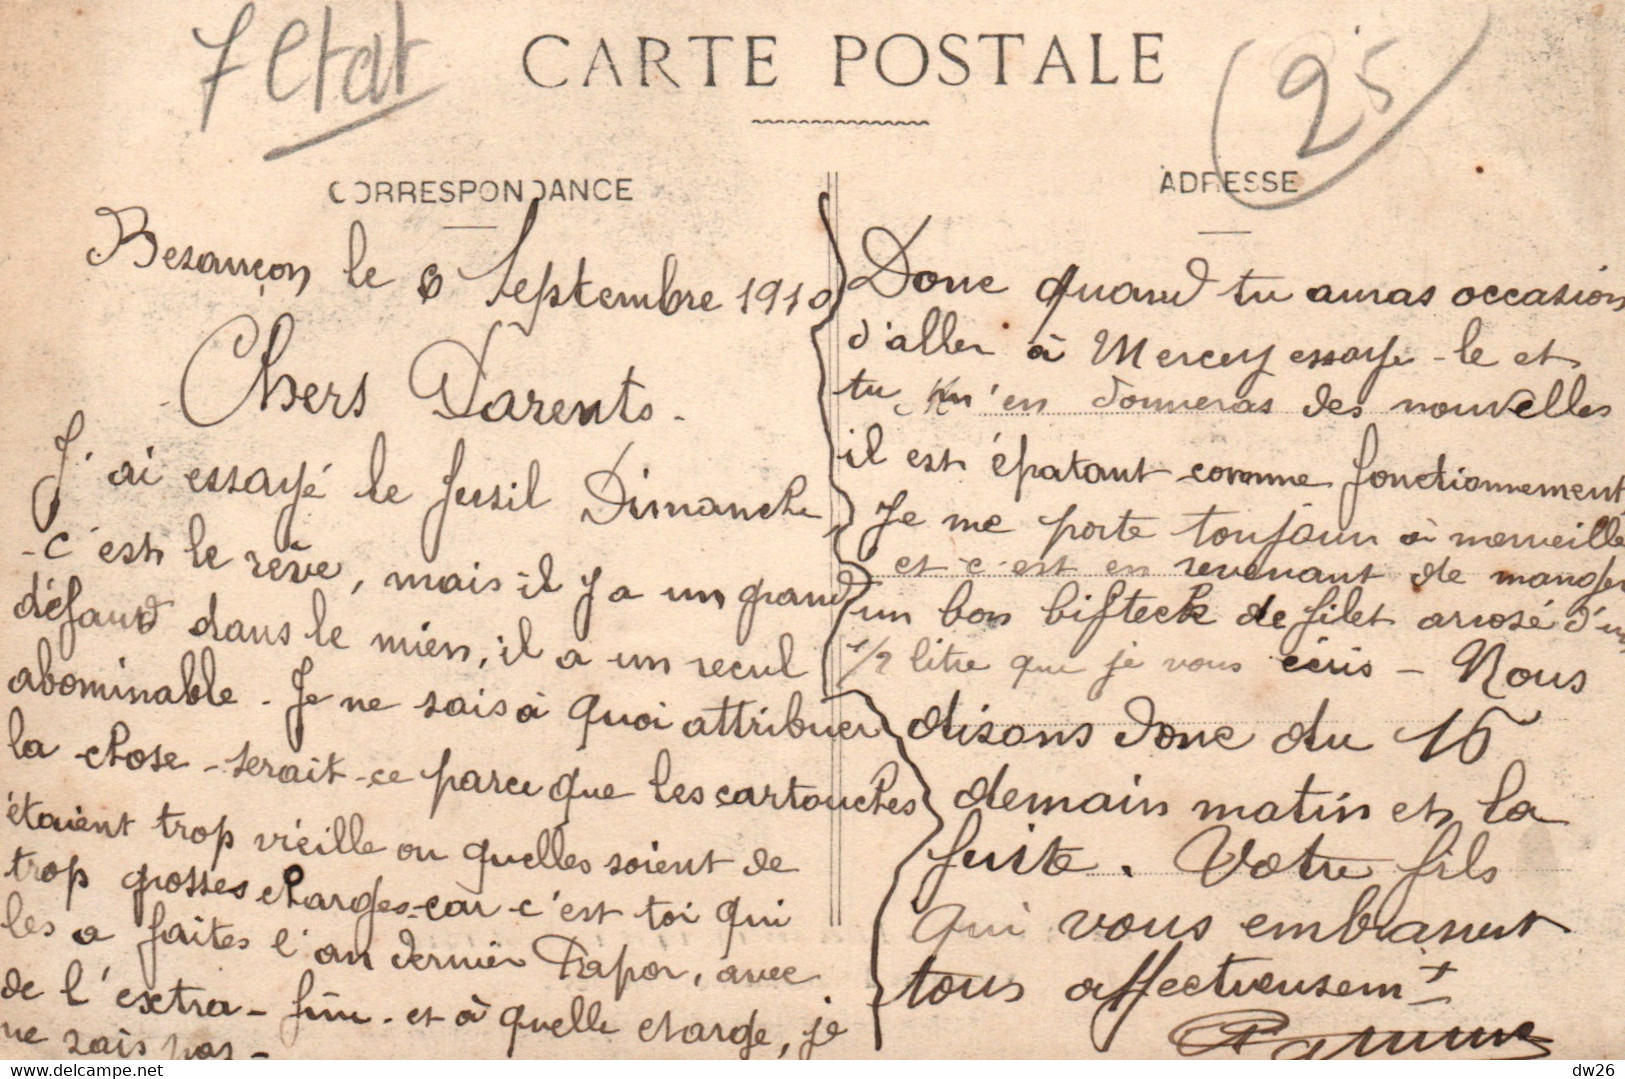 7 Etat
CARTE POSTALE
25
CORRESPONDANCE
Besançon le 6 Septembre 1910
Chers Parents.
J'ai essayé le fusil Dimanche
- c'est le rêve, mais il y a un grand
défaut dans le mien, il a un recul
abominable. Je ne sais à quoi attribuer
la chose - serait-ce parce que les cartouches
étaient trop vieille ou quelles soient de
trop grosses charges - car c'est toi qui
les a faites l'an dernier Papa, avec
de l'extra-fine - et à quelle charge, je
ne sais pas -
ADRESSE
Donc quand tu auras occasion
d'aller à Mercey essaye-le et
tu m'en donneras des nouvelles
il est épatant comme fonctionnement
Je me porte toujours à merveille
et c'est en revenant de manger
un bon bifteck de filet arrosé d'un
1/2 litre que je vous écris - Nous
disons donc du 16
demain matin et la
fuite. Votre fils
qui vous embrassent
tous affectueusemt
dw26